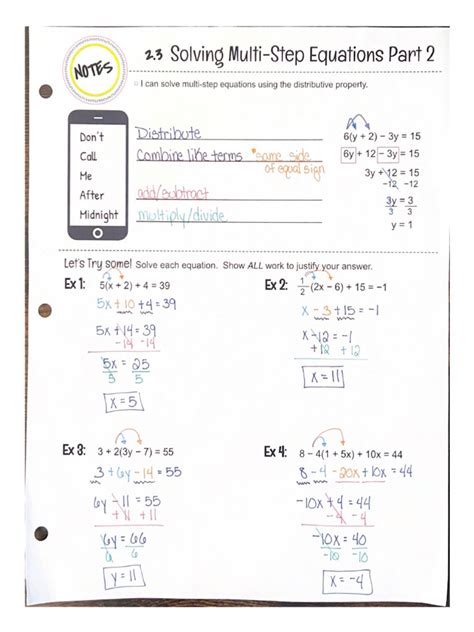 NOTES
2.3 Solving Multi-Step Equations Part 2
I can solve multi-step equations using the distributive property.
Don't Distribute
Call Combine like terms *same side of equal sign
Me
After add/subtract
Midnight multiply/divide
6(y + 2) – 3y = 15
6y + 12 – 3y = 15
3y + 12 = 15
-12 -12
3y = 3
3 3
y = 1
Let's Try some! Solve each equation. Show ALL work to justify your answer.
Ex 1: 5(x + 2) + 4 = 39
5x + 10 + 4 = 39
5x + 14 = 39
-14 -14
5x = 25
5 5
x = 5
Ex 2: 1/2 (2x – 6) + 15 = –1
x - 3 + 15 = -1
x - 12 = -1
+12 +12
x = 11
Ex 3: 3 + 2(3y – 7) = 55
3 + 6y - 14 = 55
6y - 11 = 55
+11 +11
6y = 66
6 6
y = 11
Ex 4: 8 – 4(1 + 5x) + 10x = 44
8 - 4 - 20x + 10x = 44
-10x + 4 = 44
-4 -4
-10x = 40
-10 -10
x = -4